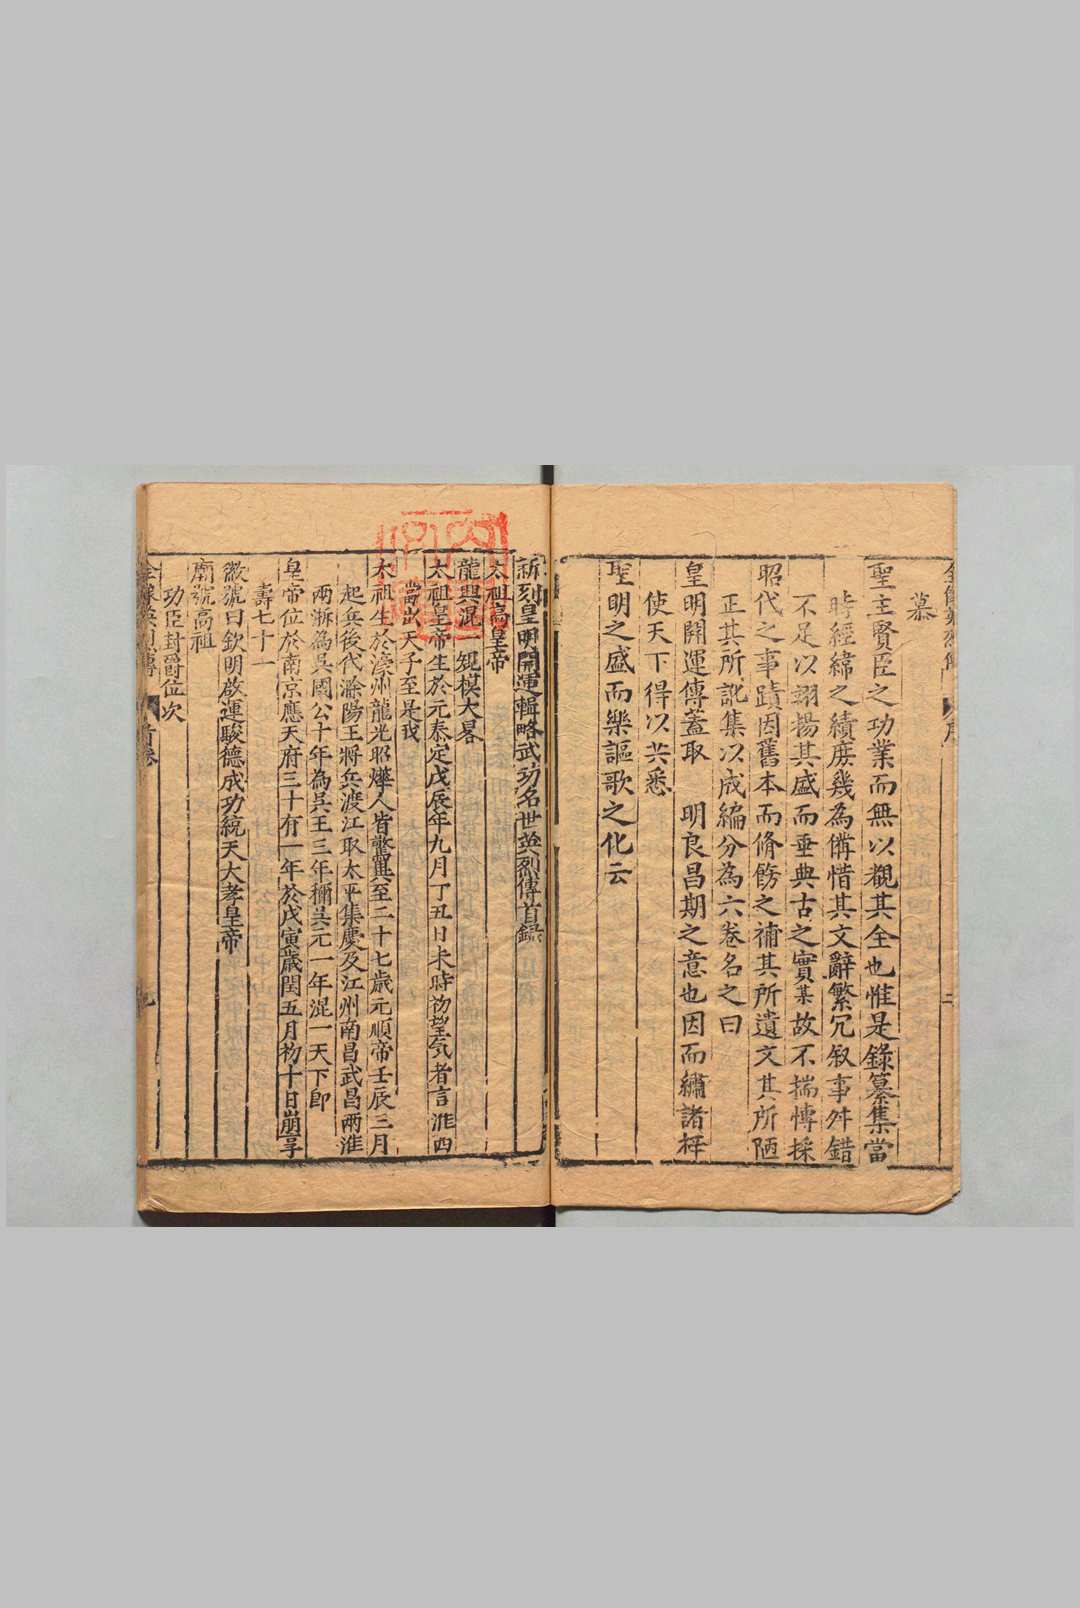 慕
聖主賢臣之功業而無以觀其全也惟是錄纂集當
時經緯之績庶幾為僃惜其文辭繁冗叙事舛錯
不足以翊揚其盛而垂典古之實某故不揣慱採
昭代之事蹟因舊本而脩飭之補其所遺文其所陋
正其所訛集以成編分為六卷名之曰
皇明開運傳蓋取　明良昌期之意也因而繡諸梓
使天下得以共悉
聖明之盛而樂謳歌之化云
新刻皇明開運輯略武功名世英烈傳首錄
太祖高皇帝
龍興混一規模大畧
太祖皇帝生於元泰定戊辰年九月丁丑日未時初望気者言淮西
當出天子至是我
太祖生於濠州龍光昭燁人皆驚異至二十七歲元順帝壬辰三月
起兵後代滁陽王將兵渡江取太平集慶及江州南昌武昌兩淮
兩浙為吳國公十年為吳王三年稱吳元一年混一天下即
皇帝位於南京應天府三十有一年於戊寅歲閏五月初十日崩享
壽七十一
徽號曰欽明啟運駿德成功統天大孝皇帝
廟號高祖
功臣封爵位次
首卷